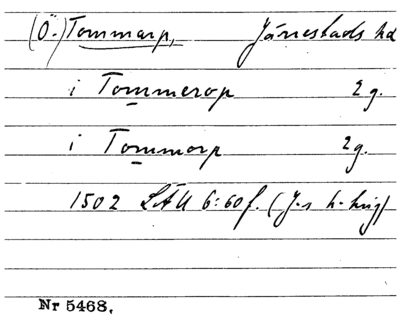 (Ö.) Tommarp, Järrestads hd
i Tommerop 2 g.
i Tommorp 2 g.
1502 LÄU 6:60 f. (J-s h-hrig)
Nr 5468,